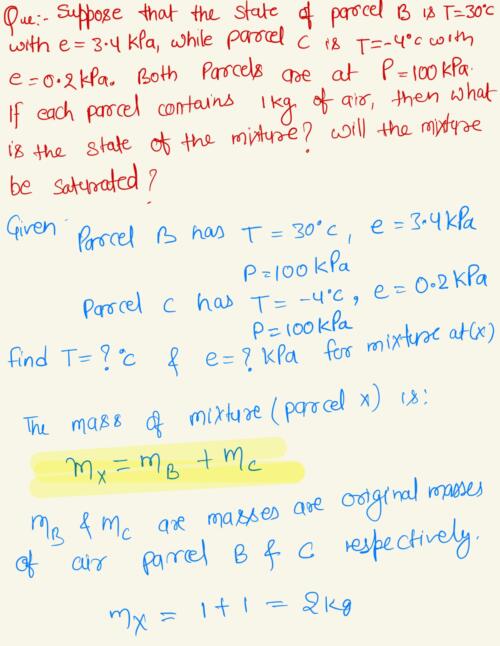 Que:- Suppose that the state of parcel B is T=30°C
with e = 3.4 kPa, while parcel C is T=-4°C with
e=0.2 kPa. Both Parcels are at P=100 kPa.
If each parcel contains 1kg of air, then what
is the state of the mixture? will the mixture
be saturated?
Given
Parcel B has T = 30°C, e = 3.4 kPa
P=100 kPa
Parcel C has T = -4°C, e = 0.2 kPa
P=100 kPa
find T=? °C & e=? kPa for mixture at(x)
The mass of mixture (parcel x) is:
mx = mB + mC
mB & mC are masses are original masses
of air parcel B & C respectively.
mx = 1+1 = 2kg